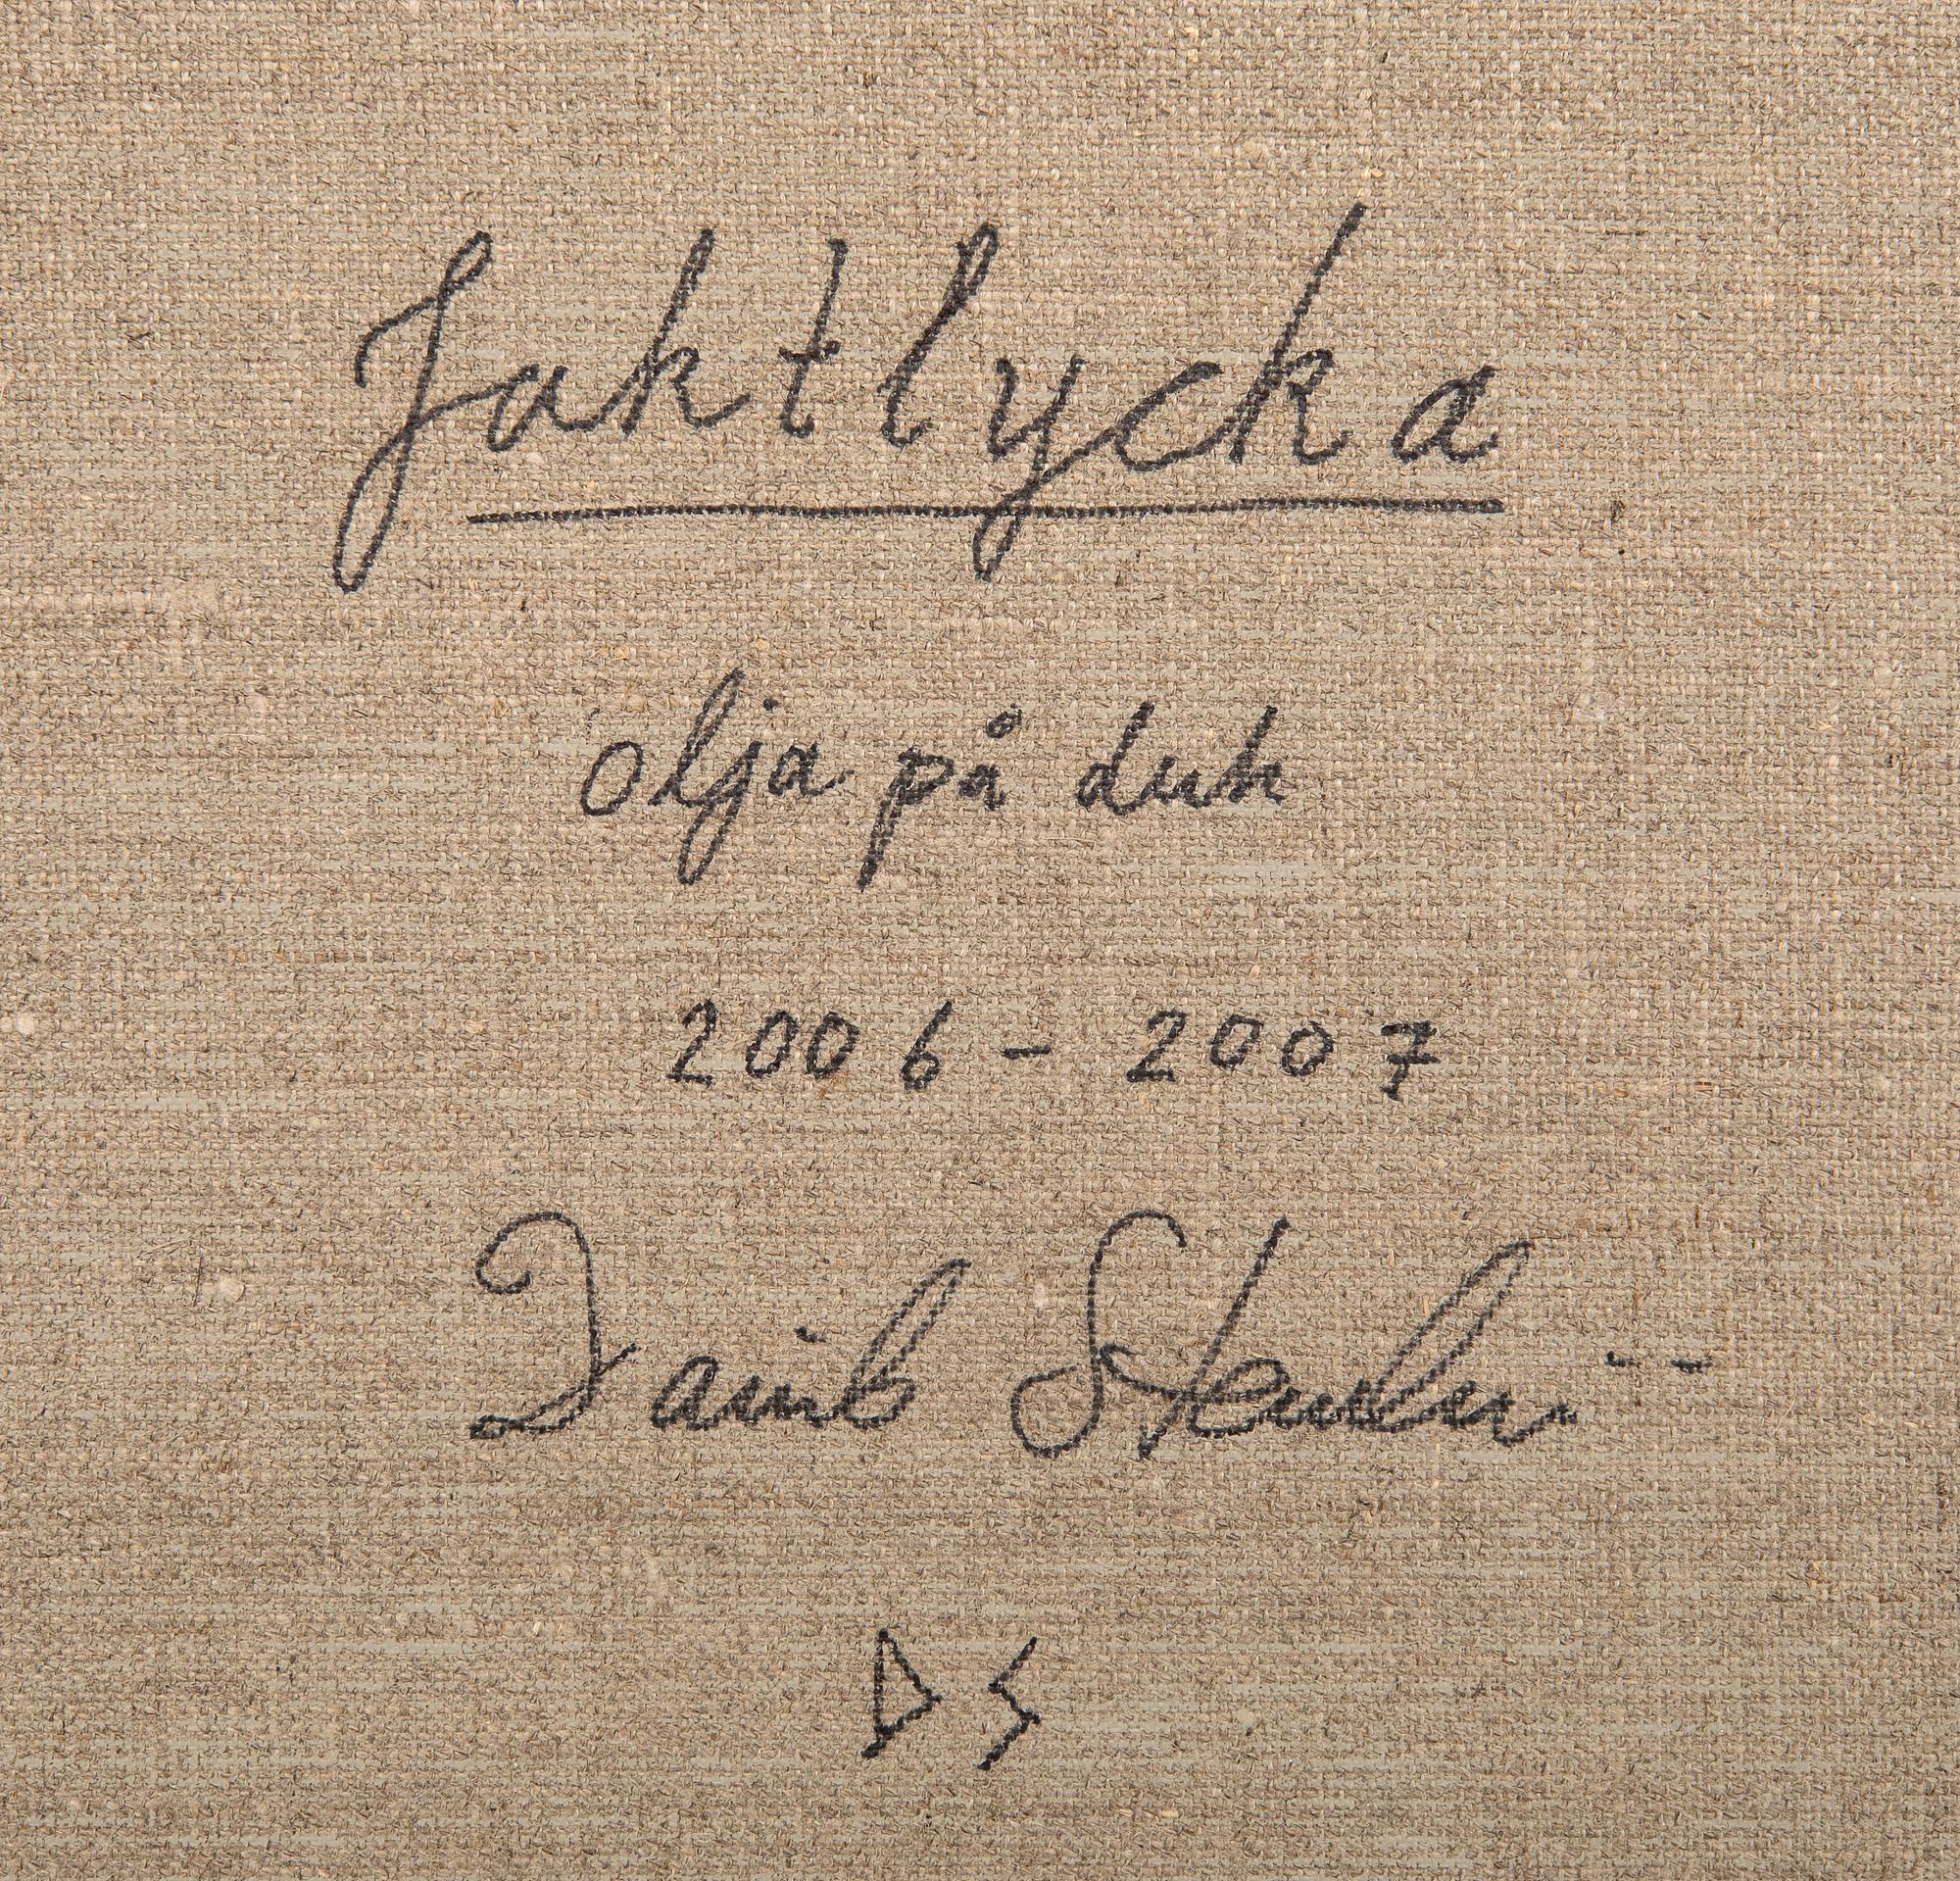 Jaktlycka
olja på duk
2006 - 2007
David
DS